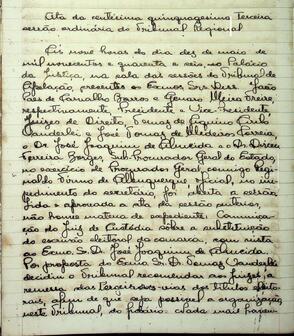 Ata da centésima quinquagesima Terceira
sessão ordinária do Tribunal Regional
Às nove horas do dia dez de maio de
mil novecentos e quarenta e seis, no Palácio
da Justiça, na sala das sessões do Tribunal de
Apelação, presentes os Exmos Srs Drs João
Paes de Carvalho Barros e Genaro Freire,
respectivamente, Presidente e Vice-Presidente
Juizes de Direito, Tomaz de Aquino Carlo
Wanderlei e José Tomaz de Medeiros Correia,
o Dr José Joaquim de Almeida e o Dr Dirceu
Ferreira Borges, Sub-Procurador Geral do Estado,
no exercício de Procurador Geral, comigo Regi
naldo de Albuquerque, oficial, no im
pedimento do secretário foi aberta a sessão
lida e aprovada a ata da sessão anterior,
não houve materia de expediente. Comunica
ção do Juiz de Custódia sobre a substituição
do escrivão eleitoral da comarca, com vista
ao Exmo. Sr. Dr José Joaquim de Almeida.
Por proposta do Exmo Sr. Dr Tomaz Wanderlei
decidiu o Tribunal recomendar aos Juizes, a
remessa das Terceiras vias dos titulos eleito
rais, afim de que seja possivel a organização,
neste Tribunal, do fichário. Nada mais haven-